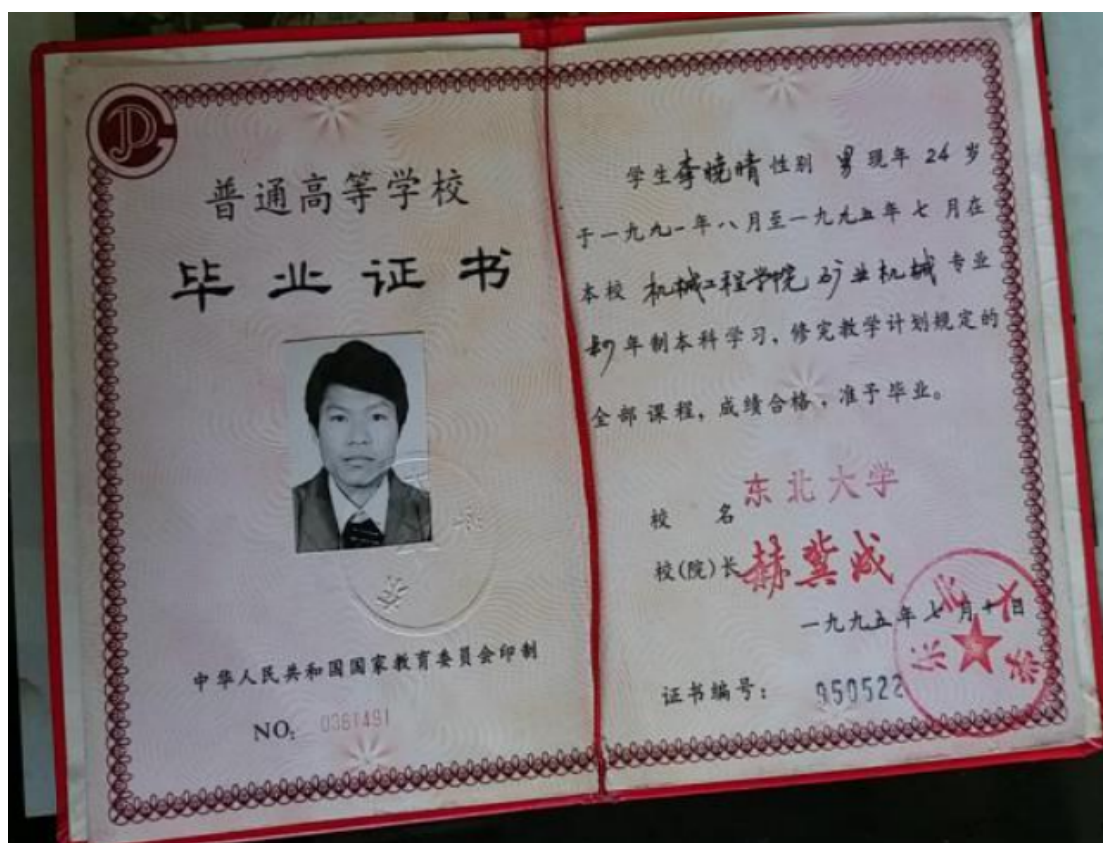 普通高等学校
毕业证书
中华人民共和国国家教育委员会印制
NO: 0361491
学生李晓晴性别 男 现年 24 岁
于一九九一年八月至一九九五年七月在
本校 机械工程学院矿业机械 专业
四年制本科学习，修完教学计划规定的
全部课程，成绩合格，准予毕业。
校 名 东北大学
校(院)长 赫冀成
一九九五年七月十日
证书编号： 950522